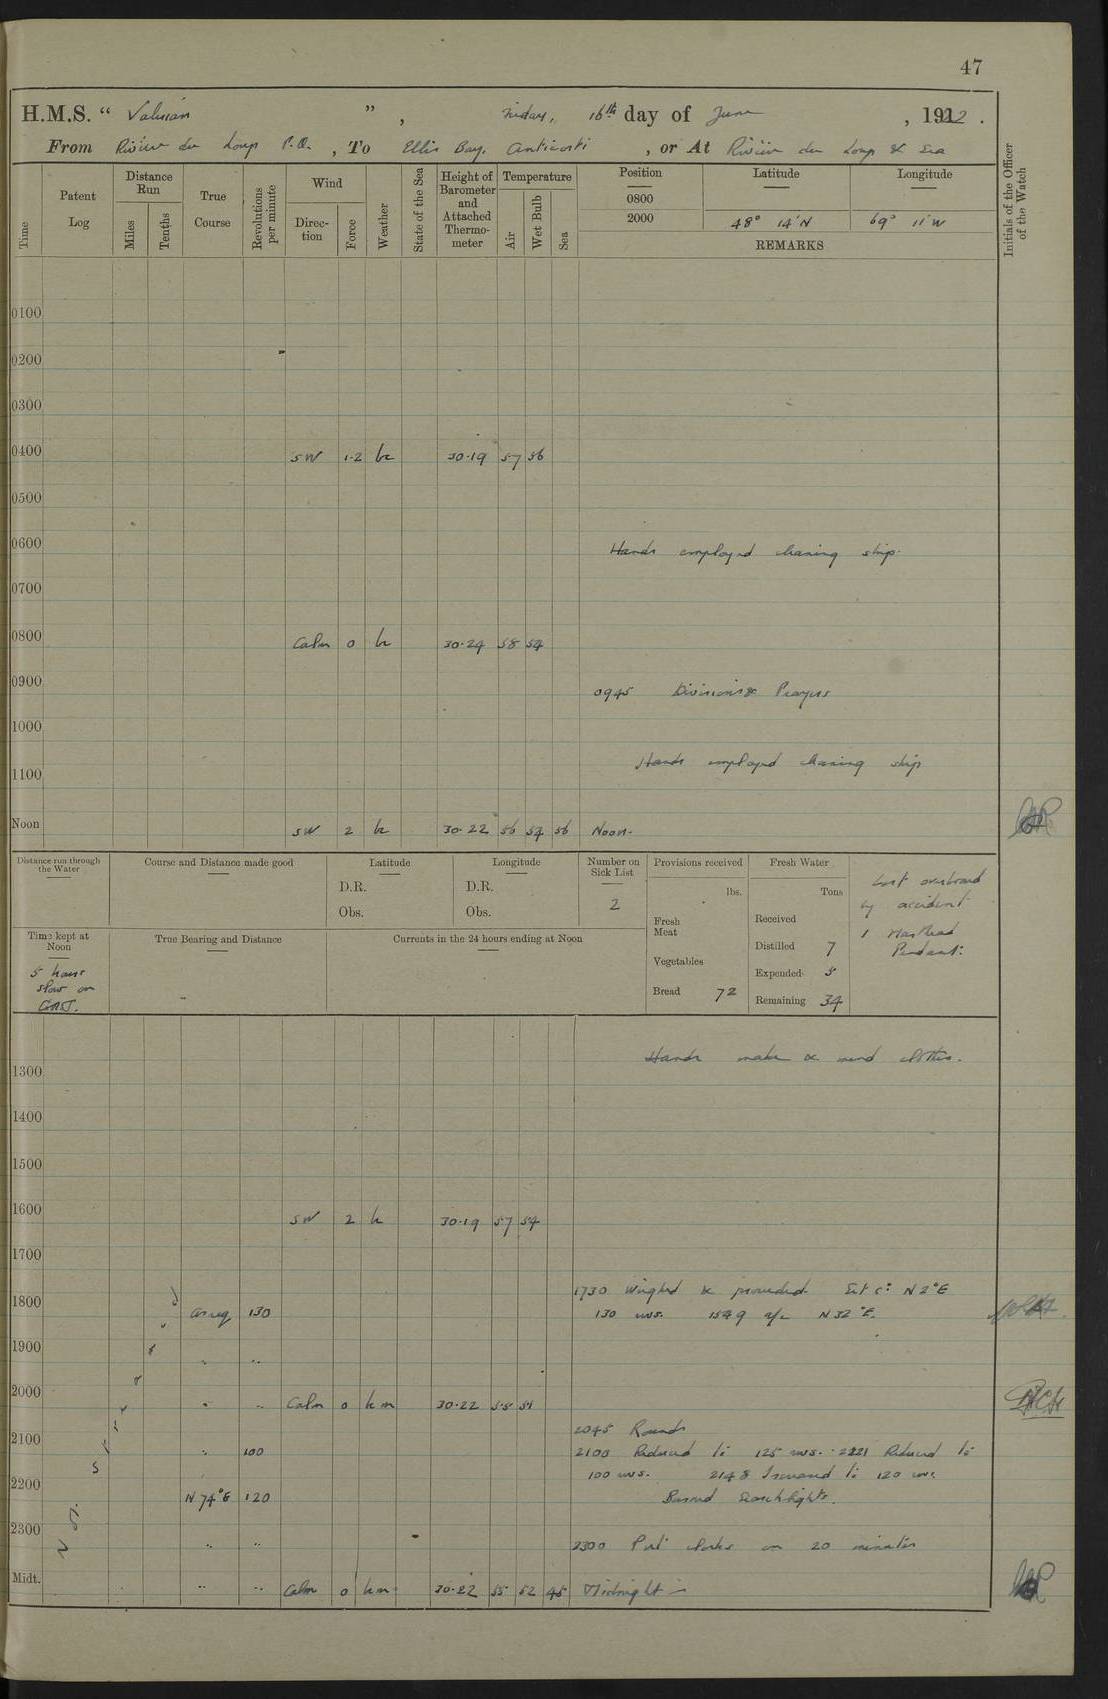 47
H.M.S. “ Valerian ” , Friday, 16th day of June , 1922 .
From Rivière du Loup P.Q. , To Ellis Bay, Anticosti , or At Rivière du Loup & Sea
Time Patent Log Distance Run Miles Tenths True Course Revolutions per minute Wind Direction Force Weather State of the Sea Height of Barometer and Attached Thermometer Temperature Air Wet Bulb Sea Position Latitude Longitude Initials of the Officer of the Watch
0800
2000 48° 14'N 69° 11'W
REMARKS
0100
0200
0300
0400 SW 1-2 bc 30.19 57 56
0500
0600 Hands employed cleaning ship.
0700
0800 Calm 0 bc 30.24 58 54
0900 0945 Divisions & Prayers
1000
1100 Hands employed cleaning ship
Noon SW 2 bc 30.22 56 54 56 Noon.
Distance run through the Water Course and Distance made good Latitude Longitude Number on Sick List Provisions received Fresh Water
D.R. D.R. lbs. Tons Lost overboard
Obs. Obs. 2 Fresh Meat Received by accident
Time kept at Noon True Bearing and Distance Currents in the 24 hours ending at Noon Distilled 7 1 Masthead Pendant.
5 hours Vegetables Expended 5
slow on Bread 72 Remaining 34
G.M.T.
Hands make & mend clothes.
1300
1400
1500
1600 SW 2 bc 30.19 57 54
1700
1730 Weighed & proceeded Set co: N 2°E
1800 as req 130 130 revs. 1549 a/c N 32°E.
1900 " "
2000 " " Calm 0 bcm 30.22 55 51
2045 Rounds
2100 " 100 2100 Reduced to 125 revs. 2121 Reduced to
100 revs. 2148 Increased to 120 revs.
2200 N 74°E 120 Burned Searchlights.
2300 " " 2300 Put clocks on 20 minutes
Midt. " " Calm 0 bcm 30.22 55 52 45 Midnight